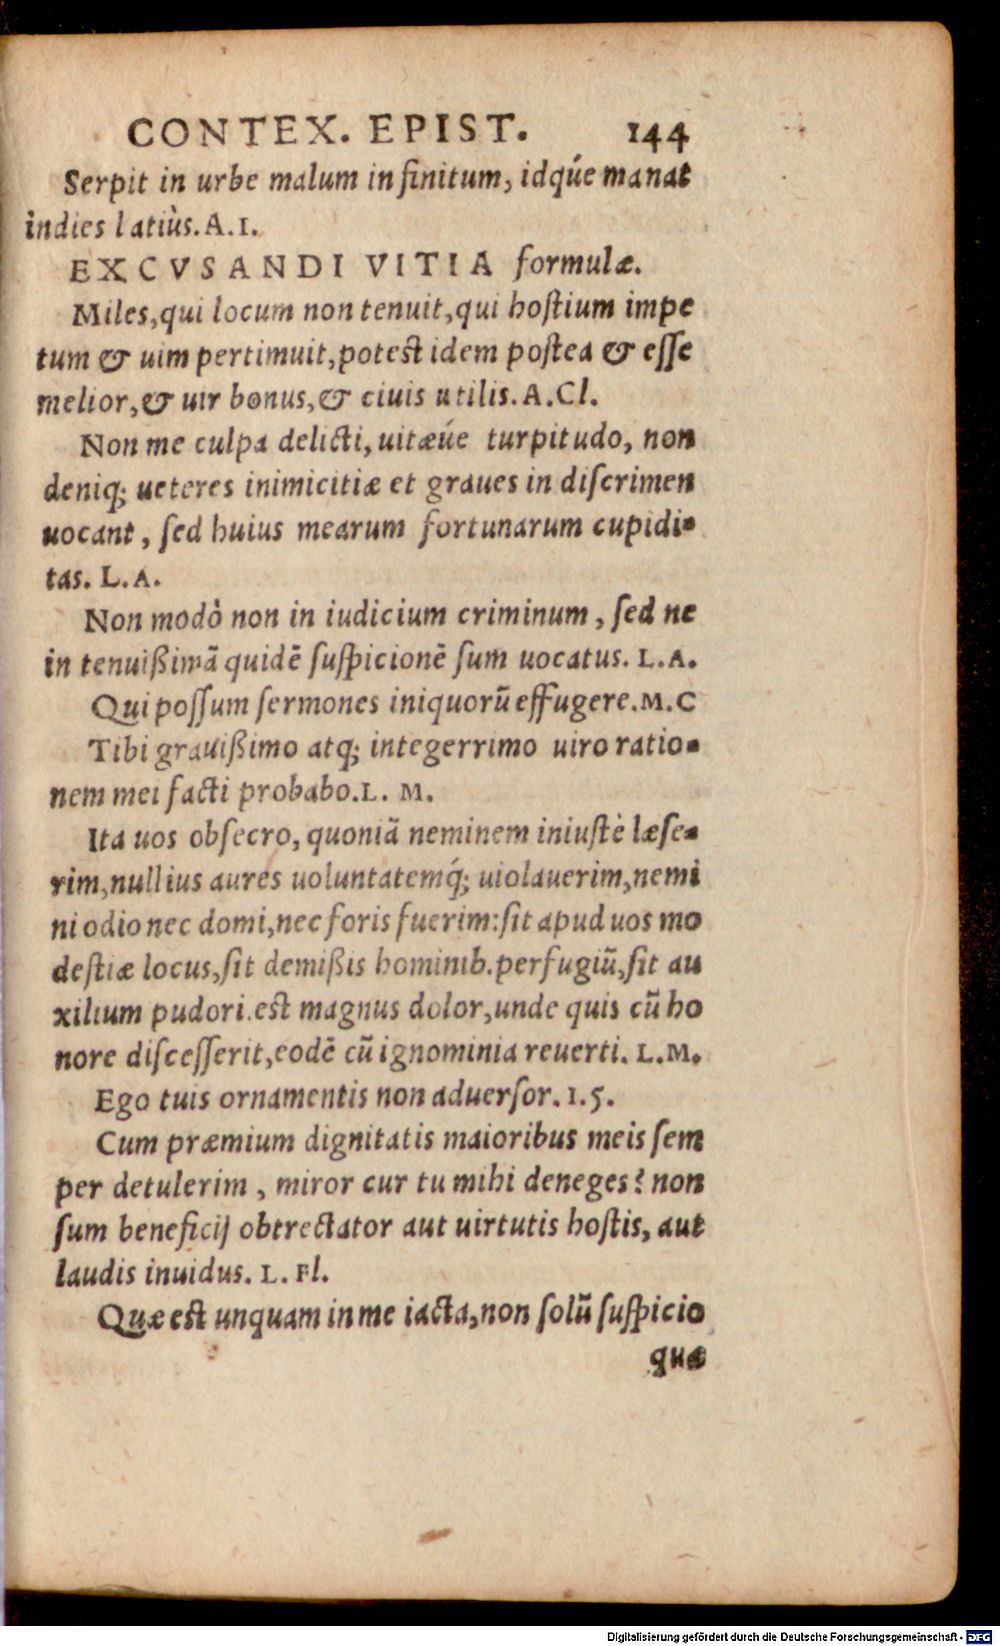 CONTEX. EPIST. 144
Serpit in urbe malum infinitum, idq́ue manat
indies latiùs. A.I.
EXCVSANDI VITIA formulæ.
Miles, qui locum non tenuit, qui hoſtium impe
tum & uim pertimuit, poteſt idem poſtea & eſſe
melior, & uir bonus, & ciuis utilis. A.Cl.
Non me culpa delicti, uitæúe turpitudo, non
deniq; ueteres inimicitiæ et graues in diſcrimen
uocant, ſed huius mearum fortunarum cupidi-
tas. L.A.
Non modò non in iudicium criminum, ſed ne
in tenuißimã quidẽ ſuſpicionẽ ſum uocatus. L.A.
Qui poſſum ſermones iniquorũ effugere. M.C
Tibi grauißimo atq; integerrimo uiro ratio-
nem mei facti probabo. L. M.
Ita uos obſecro, quoniã neminem iniuſtè læſe-
rim, nullius aures uoluntatemq́; uiolauerim, nemi
ni odio nec domi, nec foris fuerim: ſit apud uos mo
deſtiæ locus, ſit demißis hominib. perfugiũ, ſit au
xilium pudori. eſt magnus dolor, unde quis cũ ho
nore diſceſſerit, eodẽ cũ ignominia reuerti. L.M.
Ego tuis ornamentis non aduerſor. 1.5.
Cum præmium dignitatis maioribus meis ſem
per detulerim, miror cur tu mihi deneges? non
ſum beneficij obtrectator aut uirtutis hoſtis, aut
laudis inuidus. L. Fl.
Quæ eſt unquam in me iacta, non ſolũ ſuſpicio
quæ
Digitalisierung gefördert durch die Deutsche Forschungsgemeinschaft - DFG